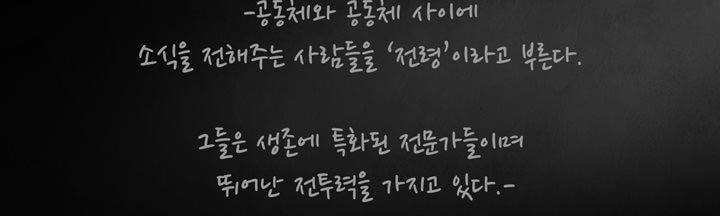 -공동체와 공동체 사이에
소식을 전해주는 사람들을 ‘전령’이라고 부른다.
그들은 생존에 특화된 전문가들이며
뛰어난 전투력을 가지고 있다.-